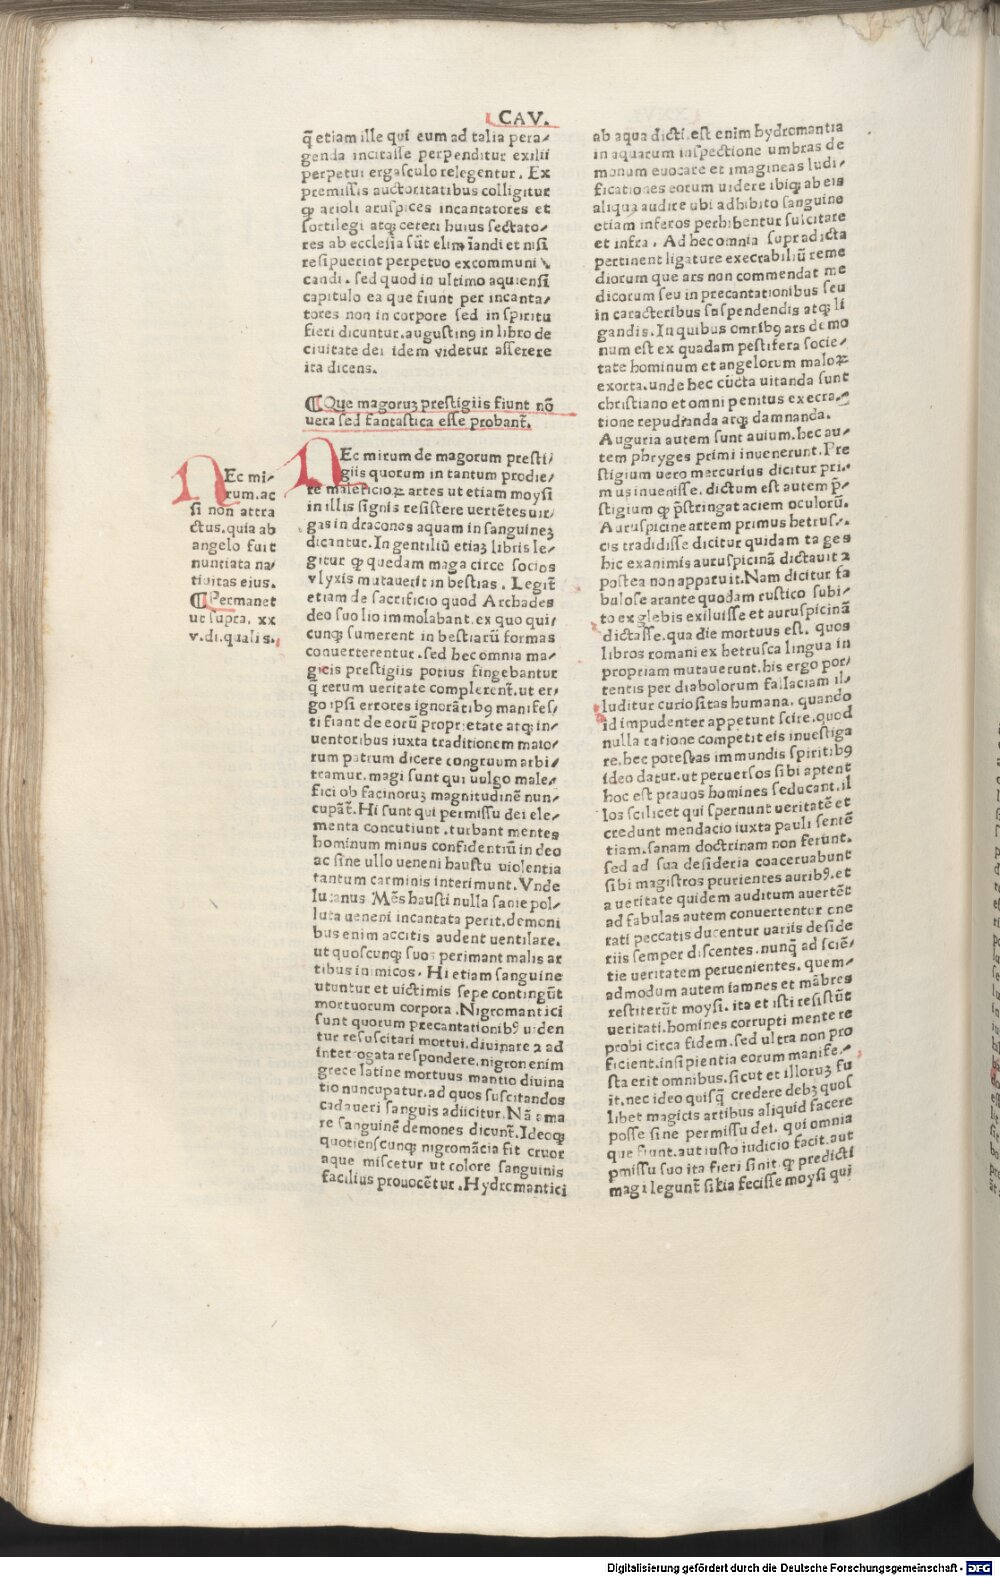 CAV.
q̄ etiam ille qui eum ad talia pera⸗
genda incitasse perpenditur exilii
perpetui ergasculo relegentur. Ex
premissis auctoritatibus colligitur
ꝙ arioli aruspices incantatores et
sortilegi atqꝫ ceteri huius sectato⸗
res ab ecclesia sūt elimīandi et nisi
resipuerint perpetuo excommuni
candi. sed quod in ultimo aquiensi
capitulo ea que fiunt per incanta⸗
tores non in corpore sed in spiritu
fieri dicuntur. augustinꝯ in libro de
ciuitate dei idem videtur asserere
ita dicens.
¶Que magoruꝫ prestigiis fiunt nō
uera sed fantastica esse probant̄.
NEc mirum de magorum presti⸗
giis quorum in tantum prodie⸗
re maleficioꝝ artes ut etiam moysi
in illis signis resistere uertētes uir⸗
gas in dracones aquam in sanguineꝫ
dicantur. In gentiliū etiaꝫ libris le⸗
gitur ꝙ quedam maga circe socios
vlyxis mutauerit in bestias. Legit̄
etiam de sacrificio quod Archades
deo suo lio immolabant. ex quo qui⸗
cunqꝫ sumerent in bestiarū formas
conuerterentur. sed hec omnia ma⸗
gicis prestigiis potius fingebantur
q̄ rerum ueritate complerent̄. ut er⸗
go ipsi errores ignorātibꝯ manifes⸗
ti fiant de eorū proprietate atqꝫ in⸗
uentoribus iuxta traditionem maio⸗
rum patrum dicere congruum arbi⸗
tramur. magi sunt qui uulgo male⸗
fici ob facinoruꝫ magnitudinē nun⸗
cupāt̄. Hi sunt qui permissu dei ele⸗
menta concutiunt. turbant mentes
hominum minus confidentiū in deo
ac sine ullo ueneni haustu violentia
tantum carminis interimunt. Vnde
lucanus Mēs hausti nulla sanie pol⸗
luta ueneni incantata perit. demoni
bus enim accitis audent uentilare.
ut quoscunqꝫ suos perimant malis ar
tibus inimicos. Hi etiam sanguine
utuntur et uictimis sepe contingūt
mortuorum corpora. Nigromantici
sunt quorum precantationibꝯ uiden
tur resuscitari mortui. diuinare ⁊ ad
interrogata respondere. nigron enim
grece latine mortuus mantio diuina
tio nuncupatur. ad quos suscitandos
cadaueri sanguis adiicitur. Nā ama
re sanguinē demones dicunt̄. Ideoqꝫ
quotienscunqꝫ nigromācia fit cruor
aque miscetur ut colore sanguinis
facilius prouocētur. Hydromantici
NEc mi⸗
rum. ac
si non attra
ctus. quia ab
angelo fuit
nuntiata na⸗
tiuitas eius.
¶Permanet
ut supra. xx
v. di. qualis.
ab aqua dicti. est enim hydromantia
in aquarum inspectione umbras de
monum euocare et imagineas ludi⸗
ficationes eorum uidere ibiqꝫ ab eis
aliqua audire ubi adhibito sanguine
etiam inferos perhibentur suscitare
et infra. Ad hec omnia supradicta
pertinent ligature execrabiliū reme
diorum que ars non commendat me
dicorum seu in precantationibus seu
in caracteribus suspendendis atqꝫ li
gandis. In quibus omnibꝯ ars demo
num est ex quadam pestifera socie⸗
tate hominum et angelorum maloꝝ
exorta. unde hec cūcta uitanda sunt
christiano et omni penitus execra⸗
tione repudianda atqꝫ damnanda.
Auguria autem sunt auium. hec au⸗
tem phryges primi inuenerunt. Pre
stigium uero mercurius dicitur pri⸗
mus inuenisse. dictum est autem p̄⸗
stigium ꝙ p̄stringat aciem oculorū.
Auruspicine artem primus hetrus⸗
cis tradidisse dicitur quidam tages
hic exanimis auruspicinā dictauit ⁊
postea non apparuit. Nam dicitur fa
bulose arante quodam rustico subi⸗
to ex glebis exiluisse et auruspicinā
dictasse. qua die mortuus est. quos
libros romani ex hetrusca lingua in
propriam mutauerunt. his ergo por⸗
tentis per diabolorum fallaciam il⸗
luditur curiositas humana. quando
id impudenter appetunt scire. quod
nulla ratione competit eis inuestiga
re. hec potestas immundis spiritibꝯ
ideo datur. ut peruersos sibi aptent
hoc est prauos homines seducant. il
los scilicet qui spernunt ueritatē et
credunt mendacio iuxta pauli sentē
tiam. sanam doctrinam non ferunt.
sed ad sua desideria coaceruabunt
sibi magistros prurientes auribꝯ. et
a ueritate quidem auditum auertēt
ad fabulas autem conuertentur one
rati peccatis ducentur uariis deside
riis semper discentes. nunq̄ ad sciē⸗
tie ueritatem peruenientes. quem⸗
admodum autem iamnes et mābres
restiterūt moysi. ita et isti resistūt
ueritati. homines corrupti mente re
probi circa fidem. sed ultra non pro
ficient. insipientia eorum manife⸗
sta erit omnibus. sicut et illoruꝫ fu
it. nec ideo quisq̄ credere debꝫ quos
libet magicis artibus aliquid facere
posse sine permissu dei. qui omnia
que fiunt. aut iusto iudicio facit. aut
ꝑmissu suo ita fieri sinit. ꝙ predicti
magi legunt̄ silia fecisse moysi qui
Digitalisierung gefördert durch die Deutsche Forschungsgemeinschaft - DFG